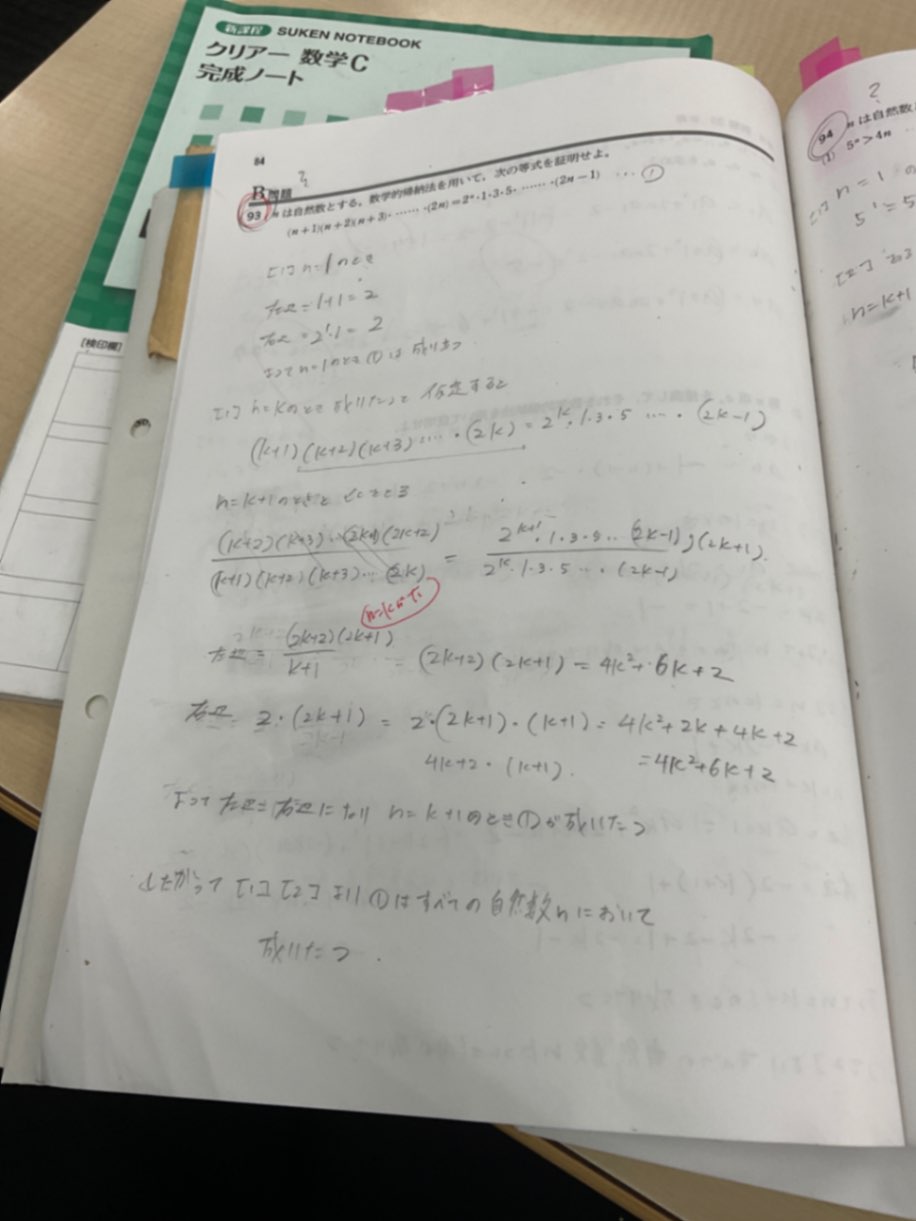 新課程 SUKEN NOTEBOOK
クリアー 数学C
完成ノート
[検印欄]
84
B問題
?
93 nは自然数とする。数学的帰納法を用いて、次の等式を証明せよ。
(n+1)(n+2)(n+3)・……・(2n)=2ⁿ・1・3・5・……・(2n−1) …①
[1] n=1のとき
左辺=1+1=2
右辺=2¹・1=2
よってn=1のとき①は成り立つ
n=kのとき成り立つと仮定すると
(k+1)(k+2)(k+3)…・(2k)=2ᵏ・1・3・5 …・(2k−1)
n=k+1のとき
(k+1)(k+2)(k+3)…(2k)
=
2ᵏ・1・3・5・…・(2k−1)
n=k+1
左辺=(2k+2)(2k+1)/k+1 =(2k+2)(2k+1)=4k²+6k+2
右辺=2・(2k+1)=2・(2k+1)・(k+1)=4k²+2k+4k+2
4k+2・(k+1). =4k²+6k+2
よって左辺=右辺になり n=k+1のとき①が成り立つ
したがって[1][2]より①はすべての自然数nにおいて
成り立つ.
?
94 nは自然数
(1) 5ⁿ>4n
[1] n=1の
5¹=5
[2]
n=k+1